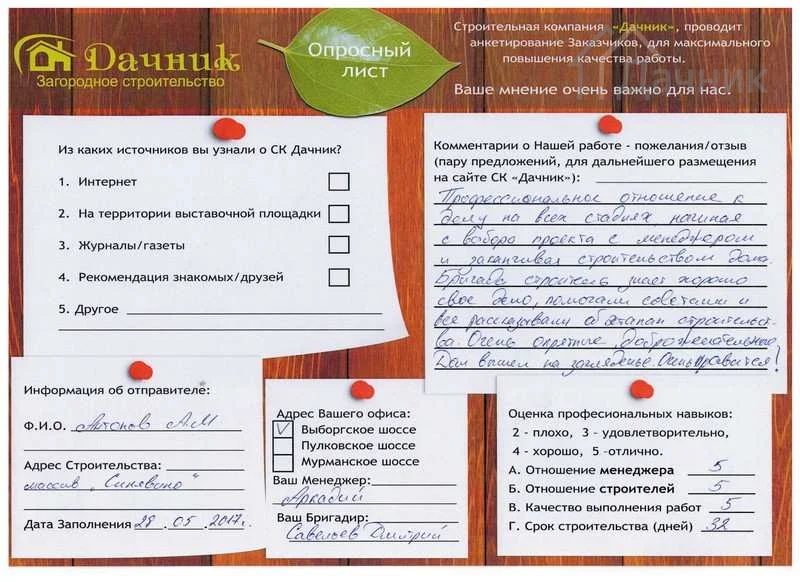 Дачник
Загородное строительство
Опросный
лист
Строительная компания «Дачник», проводит
анкетирование Заказчиков, для максимального
повышения качества работы.
Ваше мнение очень важно для нас.
Дачник
Из каких источников вы узнали о СК Дачник?
1. Интернет
2. На территории выставочной площадки
3. Журналы/газеты
4. Рекомендация знакомых/друзей
5. Другое
Комментарии о Нашей работе - пожелания/отзыв
(пару предложений, для дальнейшего размещения
на сайте СК «Дачник»):
Профессиональное отношение к
делу на всех стадиях начиная
с выбора проекта с менеджером
и заканчивая строительством дома.
Бригада строитель знает хорошо
свое дело, помогали советами и
все рассказывали об этапах строительст-
ва. Очень опрятные, доброжелательные.
Дом вышел на загляденье. Очень нравится!
Информация об отправителе:
Ф.И.О. Антонов А.М
Адрес Строительства:
массив „Синявино"
Дата Заполнения 28.05.2017г.
Адрес Вашего офиса:
Выборгское шоссе
Пулковское шоссе
Мурманское шоссе
Ваш Менеджер:
Аркадий
Ваш Бригадир:
Савельев Дмитрий
Оценка професиональных навыков:
2 - плохо, 3 - удовлетворительно,
4 - хорошо, 5 -отлично.
А. Отношение менеджера 5
Б. Отношение строителей 5
В. Качество выполнения работ 5
Г. Срок строительства (дней) 32